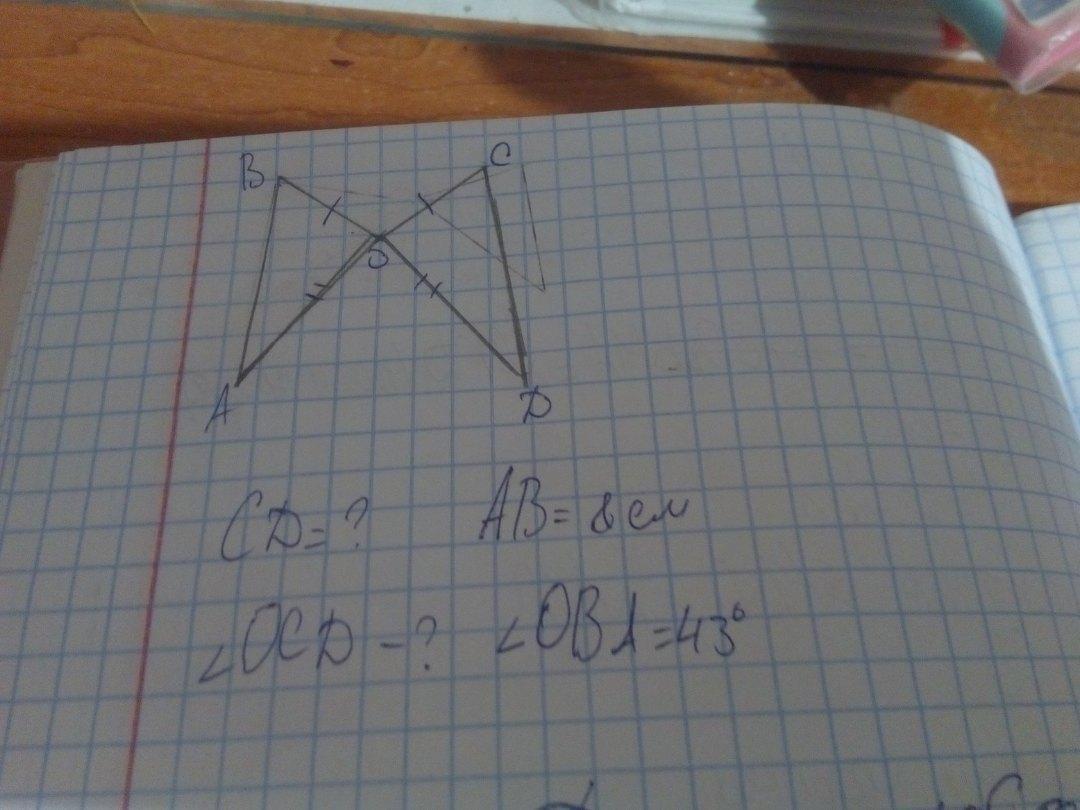 B C
O
A D
CD=? AB=8 см
∠OCD-? ∠OBA=43°